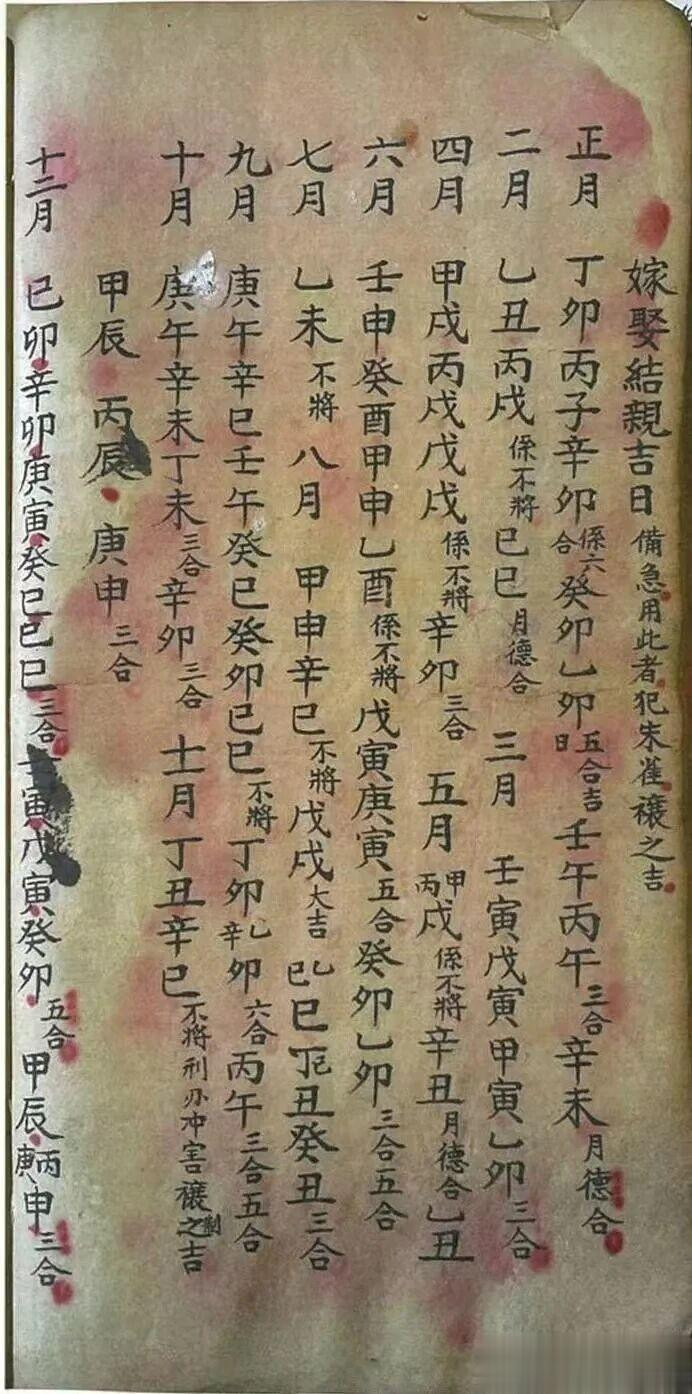 嫁娶結親吉日備急用此者犯朱雀禳之吉
正月 丁卯丙子辛卯係六合癸卯乙卯五合吉日壬午丙午三合辛未月德合
二月 乙丑丙戌係不將己巳月德合 三月 壬寅戊寅甲寅乙卯三合
四月 甲戌丙戌戊戌係不將辛卯三合 五月 甲丙戌係不將辛丑月德合乙丑
六月 壬申癸酉甲申乙酉係不將戊寅庚寅五合癸卯乙卯三合五合
七月 乙未不將 八月 甲申辛巳不將戊戌大吉乙己巳丁己丑癸丑三合
九月 庚午辛巳壬午癸巳癸卯己巳不將丁卯乙辛卯六合丙午三合五合
十月 庚午辛未丁未三合辛卯三合 十一月丁丑辛巳不將刑冲害禳之制吉
甲辰 丙辰 庚申三合
十二月 己卯辛卯庚寅癸巳己巳三合壬寅戊寅癸卯五合甲辰丙庚申三合